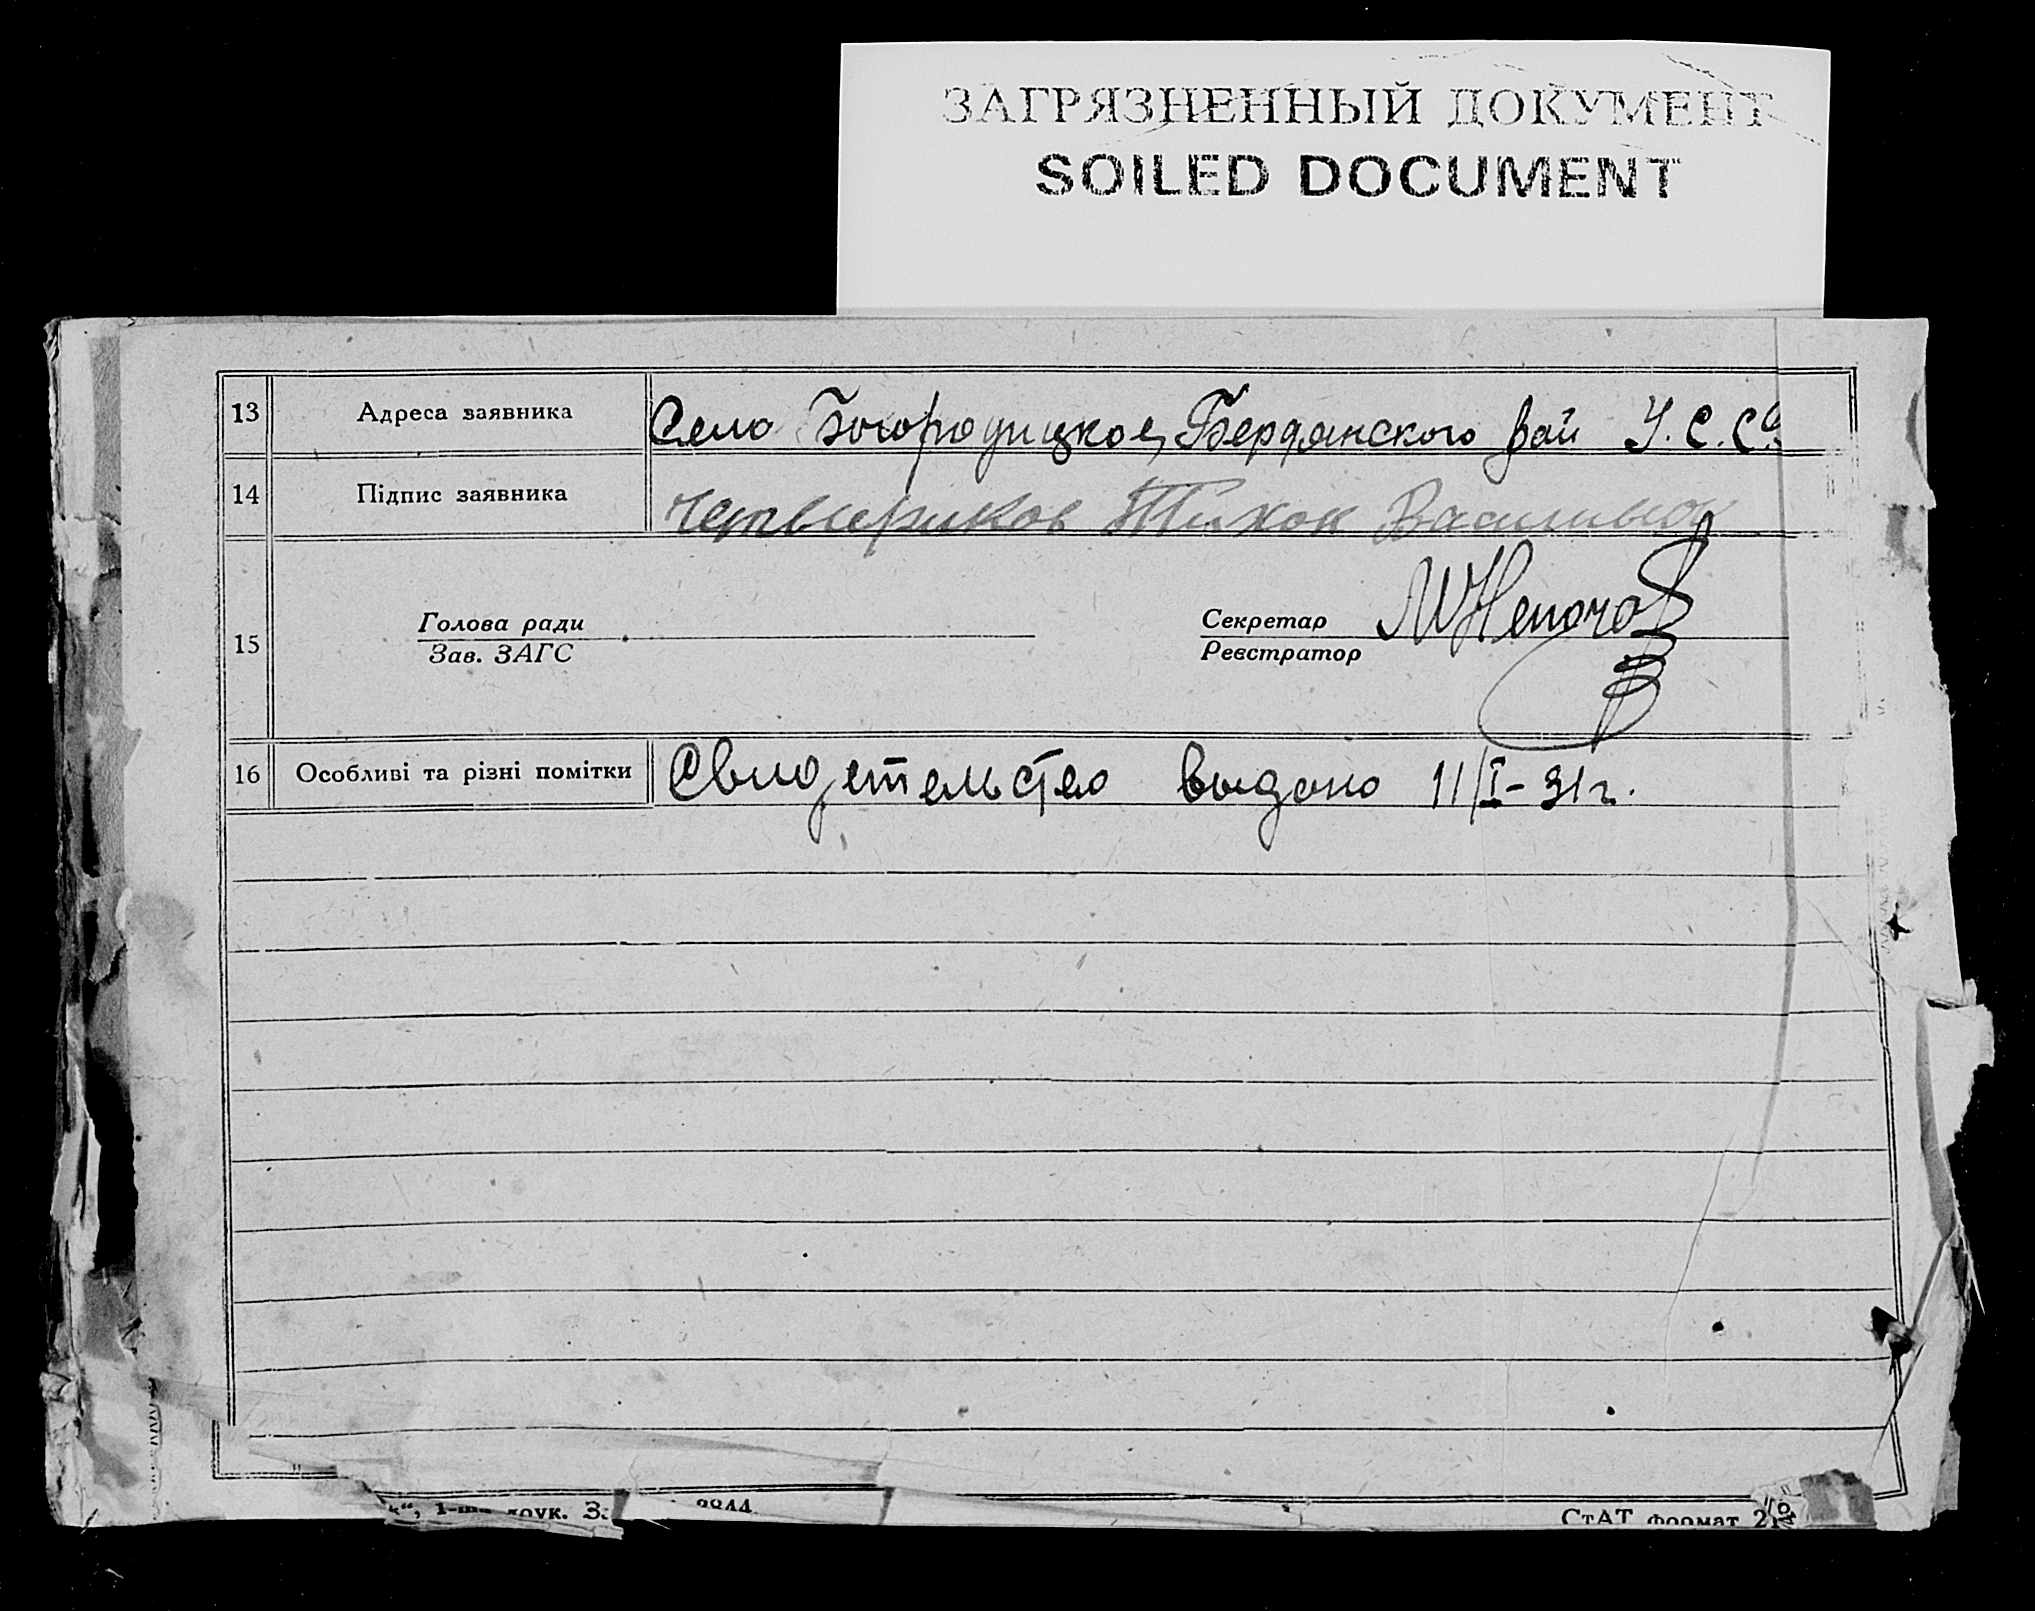 ЗАГРЯЗНЕННЫЙ ДОКУМЕНТ
SOILED DOCUMENT
13 Адреса заявника Село Богородицкое, Бердянского рай У.С.С.
14 Підпис заявника Четвериков Тихон
15 Голова ради Секретар
Зав. ЗАГС Реєстратор
16 Особливі та різні помітки Свидетельство выдано 11/I-31г.
3844
СтАТ формат